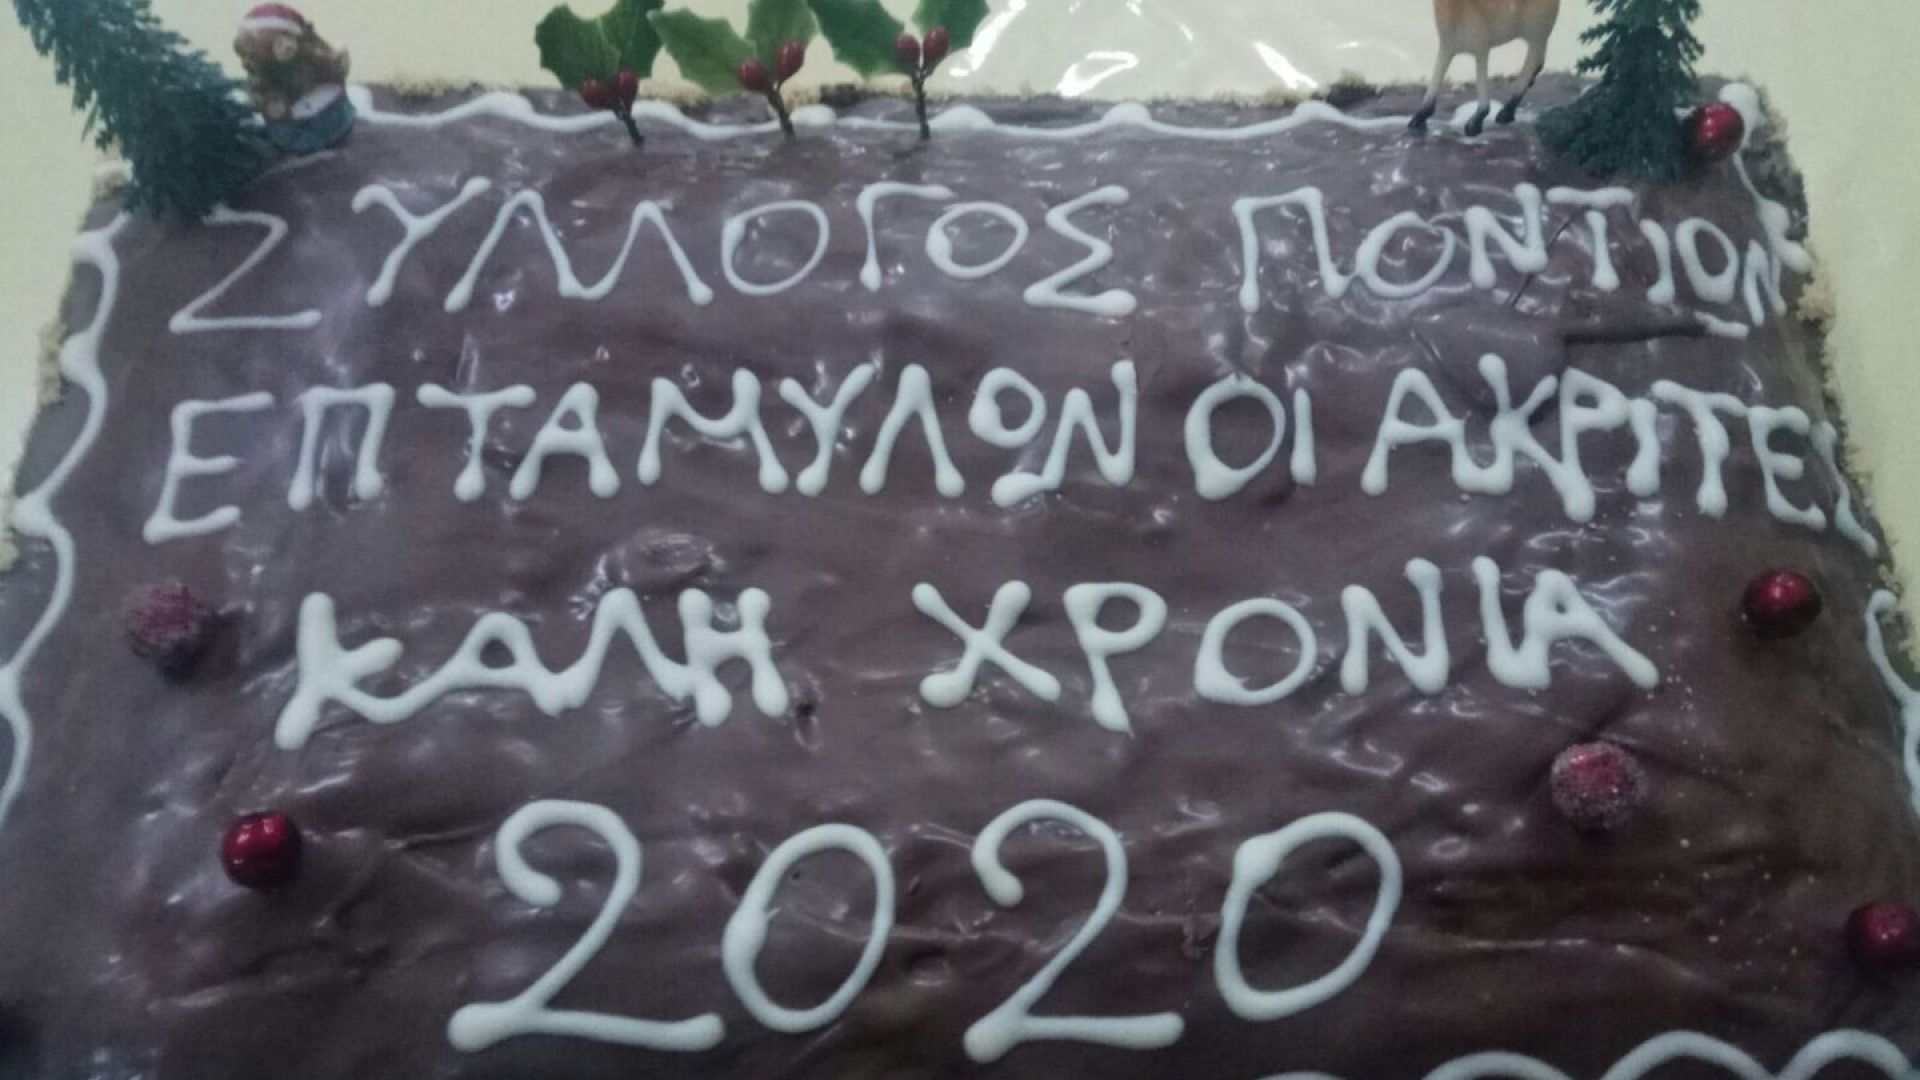 ΣΥΛΛΟΓΟΣ ΠΟΝΤΙΩΝ
ΕΠΤΑΜΥΛΩΝ ΟΙ ΑΚΡΙΤΕΣ
ΚΑΛΗ ΧΡΟΝΙΑ
2020